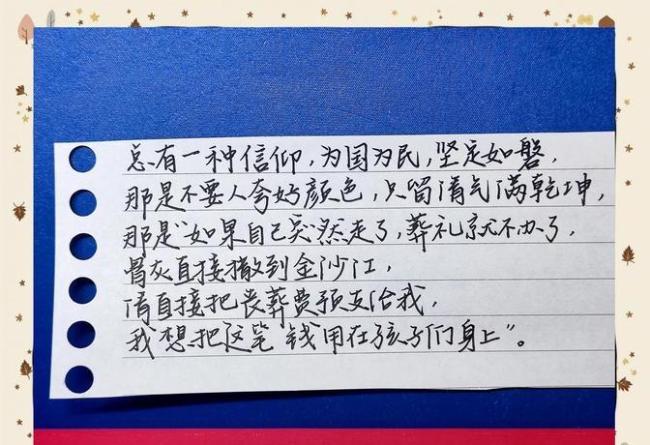 总有一种信仰，为国为民，坚定如磐，
那是不要人夸好颜色，只留清气满乾坤，
那是“如果自己突然走了，葬礼就不办了，
骨灰直接撒到金沙江，
请直接把丧葬费预支给我，
我想把这笔钱用在孩子们身上”。